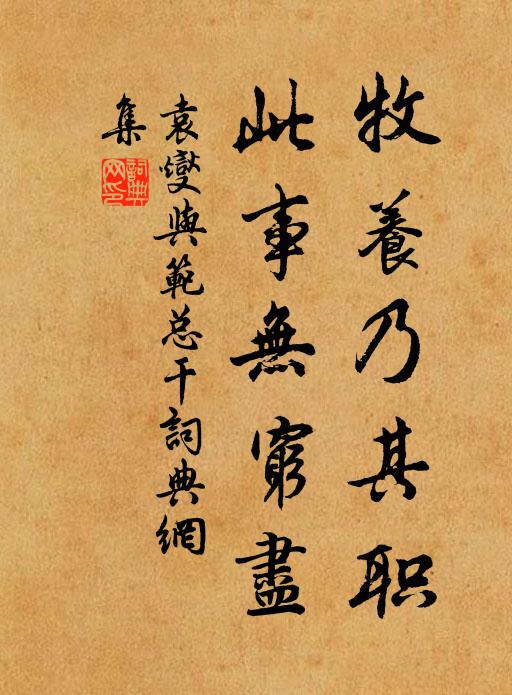 牧養乃其职
此事無窮盡
袁燮與範总干詞典網
集
詞典
网印